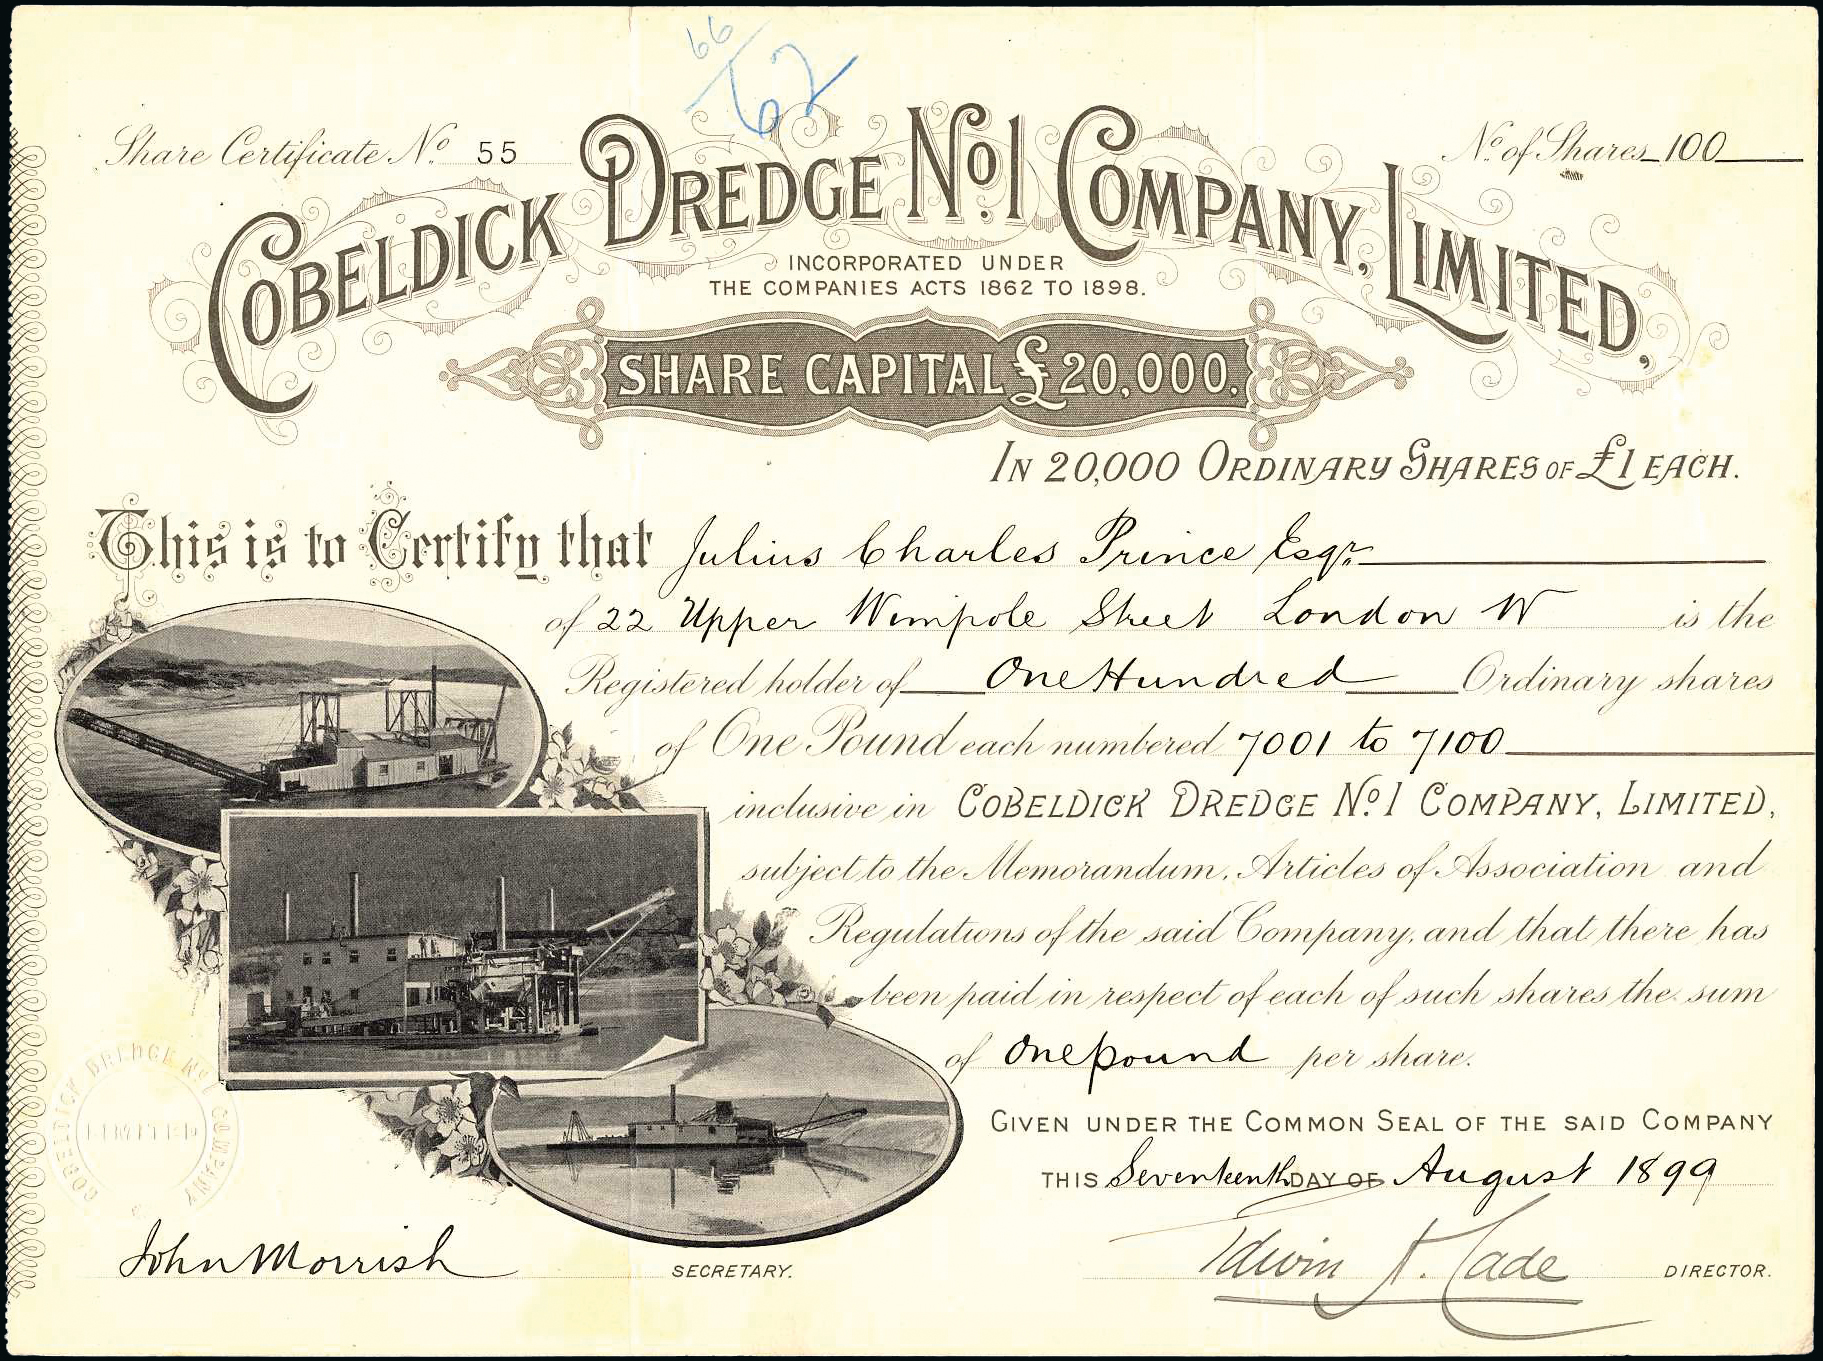 66
62
Share Certificate No. 55
No. of Shares 100
COBELDICK DREDGE No. 1 COMPANY, LIMITED,
INCORPORATED UNDER
THE COMPANIES ACTS 1862 TO 1898.
SHARE CAPITAL £20,000.
IN 20,000 ORDINARY SHARES OF £1 EACH.
This is to Certify that Julius Charles Prince Esqr.
of 22 Upper Wimpole Street London W is the
Registered holder of One Hundred Ordinary shares
of One Pound each numbered 7001 to 7100
inclusive in COBELDICK DREDGE No. 1 COMPANY, LIMITED,
subject to the Memorandum, Articles of Association and
Regulations of the said Company, and that there has
been paid in respect of each of such shares the sum
of One pound per share.
GIVEN UNDER THE COMMON SEAL OF THE SAID COMPANY
THIS Seventeenth DAY OF August 1899
COBELDICK DREDGE No. 1 COMPANY
LIMITED
John Morrish SECRETARY.
Edwin A. Cade DIRECTOR.